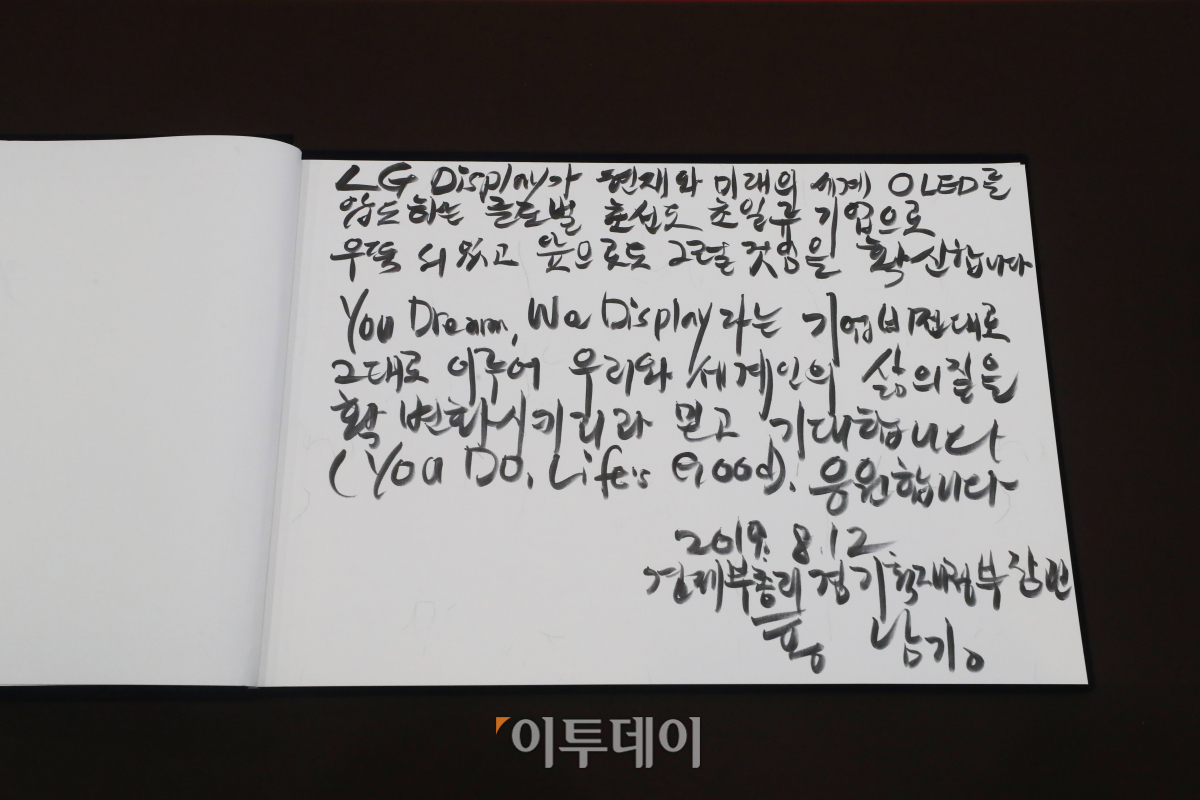 LG Display가 현재와 미래의 세계 OLED를
압도하는 글로벌 초선도 초일류 기업으로
우뚝 되었고 앞으로도 그럴 것임을 확신합니다
You Dream, We Display라는 기업비전대로
그대로 이루어 우리와 세계인의 삶의질을
확 변화시키리라 믿고 기대합니다
(You Do, Life's Good). 응원합니다
2019. 8. 12
경제부총리 겸 기획재정부장관
홍 남기
이투데이